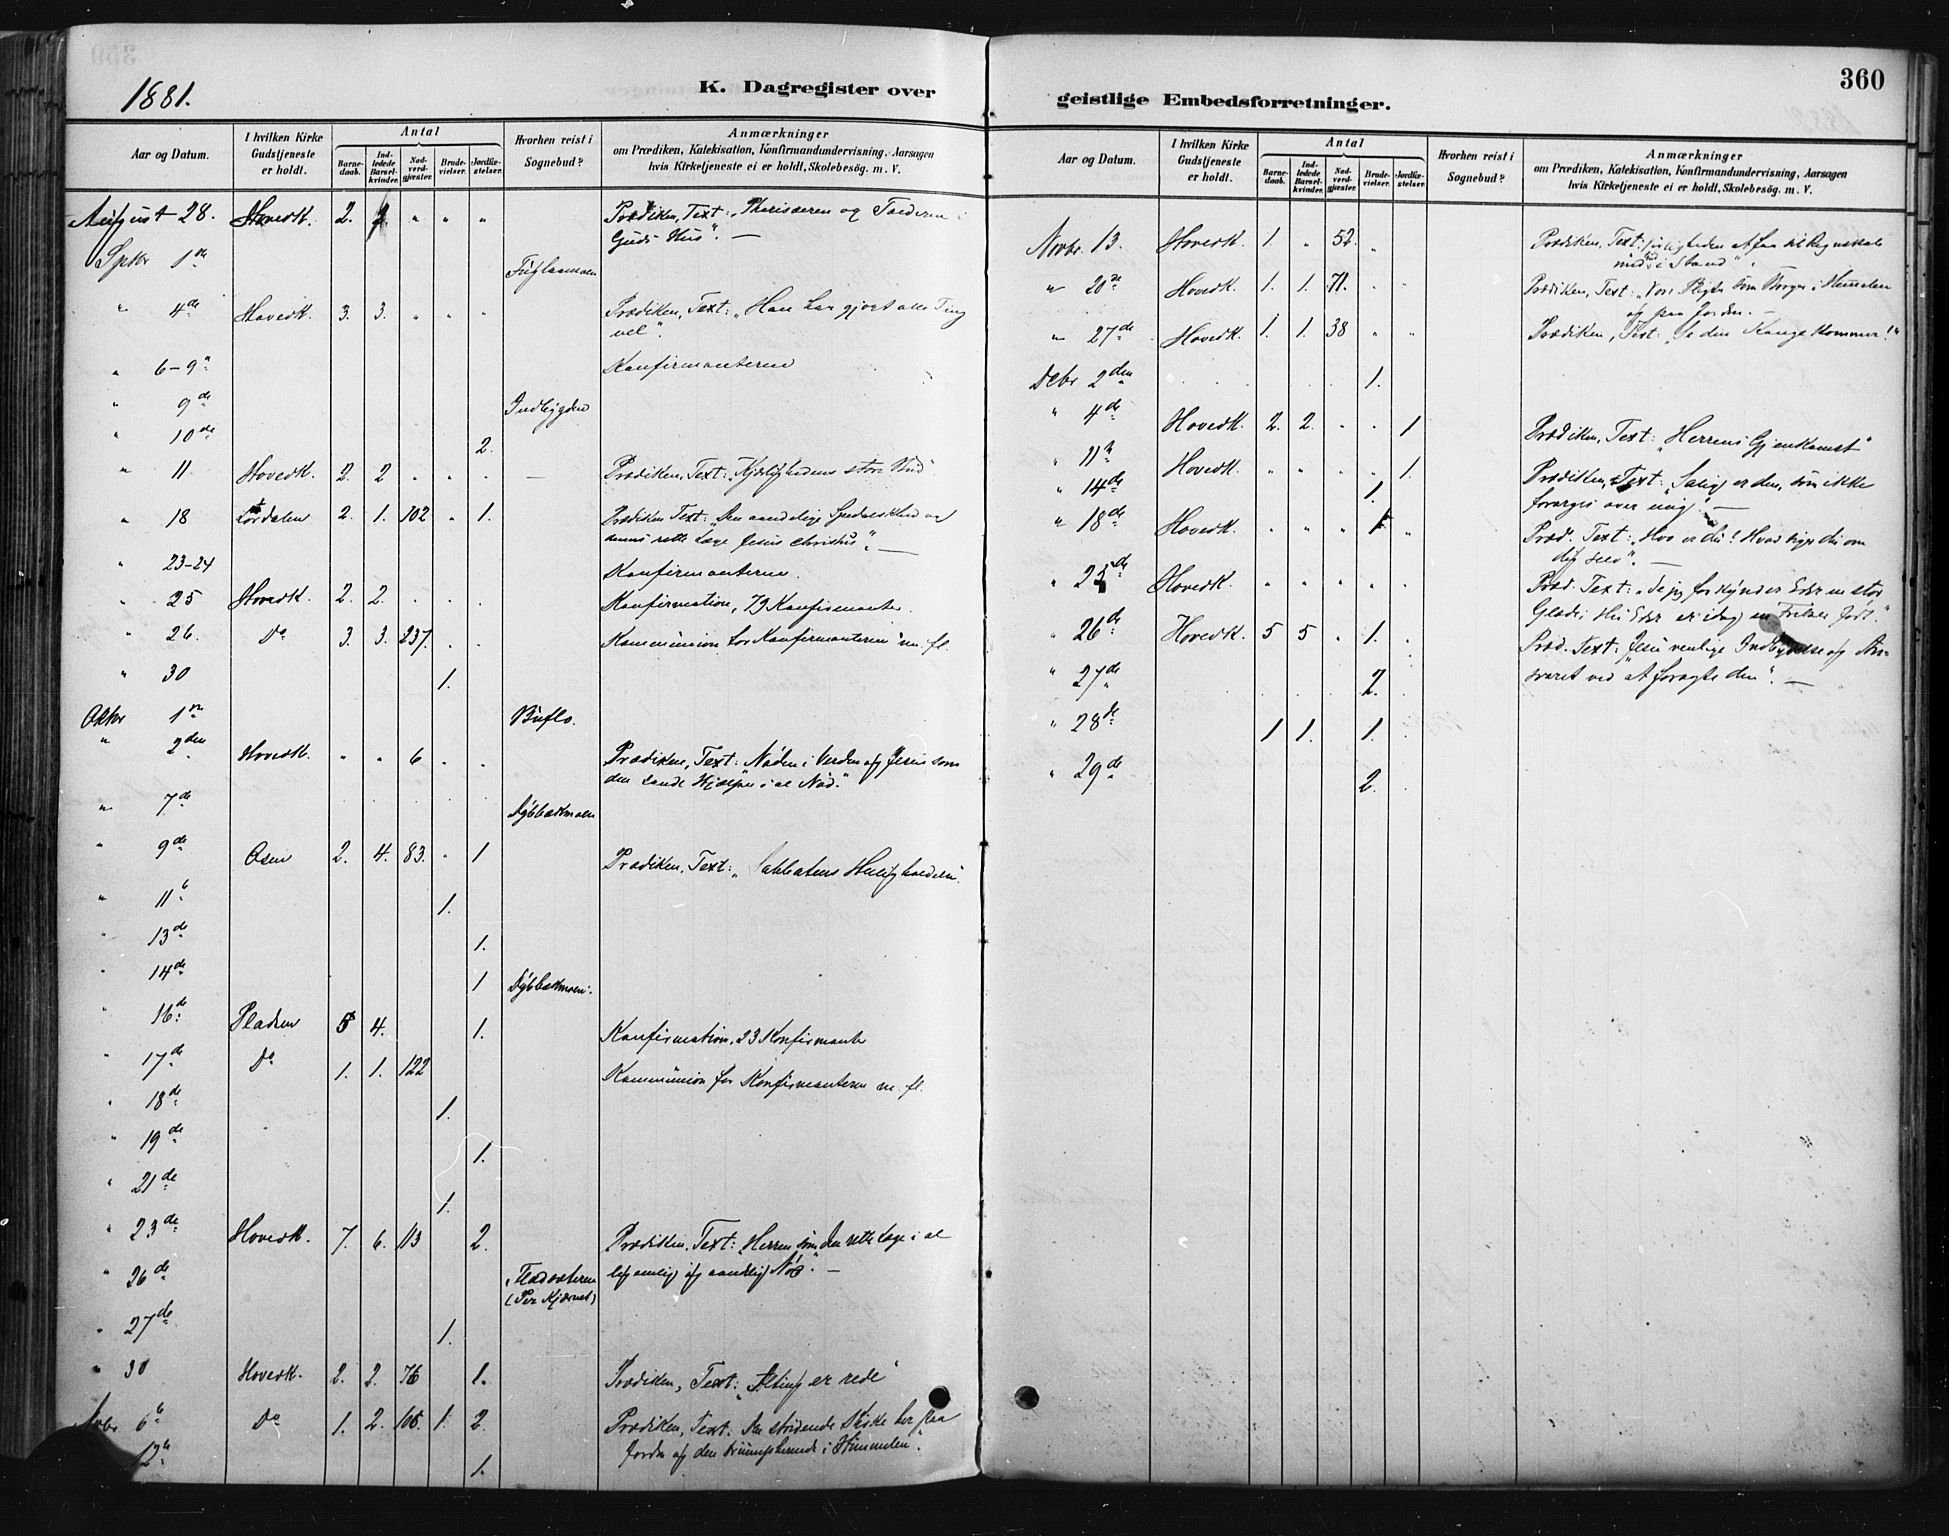 1881.
K. Dagregister over
Aar og Datum.
I hvilken Kirke Gudstjeneste er holdt.
Antal
Barnedaab.
Indledede Barselkvinder.
Nadverdgjæster.
Brudevielser.
Jordfæstelser.
Hvorhen reist i Sognebud?
Anmærkninger
om Prædiken, Katekisation, Konfirmandundervisning, Aarsagen
hvis Kirketjeneste ei er holdt, Skolebesög. m. V.
August 28. Hovedk. 2. 2. " " " Prædiken, Text: "Pharisæeren og Tolderen i
Guds Hus". —
Septbr 1ste
" 4de Hovedk. 3. 3. " " " Prædiken, Text: "Han har gjort alle Ting
vel".
" 6-9" Konfirmanterne
" 9de Indbygden
" 10de 2.
" 11 Hovedk. 2. 2 " " . — Prædiken, Text: "Kjærlighedens store Bud"
" 18 Lördalen 2. 1. 102 " 1. Prædiken Text: "Den aandelige Spedalskhed og
dennes rette Læge Jesus Christus". —
" 23-24 Konfirmanterne.
" 25 Hovedk. 2. 2. . . . Konfirmation, 79 Konfirmanter.
" 26. Do 3. 3. 237. . . Kommunion for Konfirmanterne m. fl.
" 30 1.
Oktbr 1ste Buflo.
" 2den Hovedk. " " 6 . . Prædiken, Text: Nöden i Verden og Jesus som
den sande Hjælper i al Nöd."
" 7de Dybbækmoen
" 9de Osen 2. 4. 83. " 1 Prædiken, Text: "Sabbatens Helligholdelse".
" 11te 1.
" 13de 1.
" 14de 1 Dybbækmoen.
" 16de Pladsen 5 4. 1. Konfirmation, 23 Konfirmanter
" 17de Do 1. 1. 122 Kommunion for Konfirmanterne m. fl.
" 18de 1.
" 19de 1.
" 21de 1.
" 23de Hovedk. 7. 6. 113 2. Prædiken, Text: "Herren som den rette Læge i al
legemlig og aandelig Nöd". —
" 26de Fladsæteren
(Per Kjærnet)
" 27de 1.
" 30 Hovedk. 2. 2. 76 1. Prædiken, Text: "Alting er rede"
Novbr 6te Do 1. 2. 105. 1. 2. Prædiken, Text: Den stridende Kirke her paa
Jorden og den triumpherende i Himmelen".
12te 1.
geistlige Embedsforretninger.
360
Aar og Datum.
I hvilken Kirke Gudstjeneste er holdt.
Antal
Barnedaab.
Indledede Barselkvinder.
Nadverdgjæster.
Brudevielser.
Jordfæstelser.
Hvorhen reist i Sognebud?
Anmærkninger
om Prædiken, Katekisation, Konfirmandundervisning, Aarsagen
hvis Kirketjeneste ei er holdt, Skolebesög. m. V.
Novbr. 13. Hovedk. 1. " 52. " Prædiken, Text: at faa sit Regnskab
i Stand".
" 20de Hovedk. 1. 1. 71. . . Prædiken, Text: "Vore Pligter som Borger i Himmelen
og paa Jorden. —
" 27de Hovedk. 1. 1. 38 " " Prædiken, Text: "Se din Konge kommer!"
Debr 2den 1.
" 4de Hovedk. 2. 2. . . 1 Prædiken, Text: "Herrens Gjenkomst"
" 11te Hovedk. " " " " 1. Prædiken, Text: "Salig er den, som ikke
forarges over mig". —
" 14de 1.
" 18de Hovedk. " " " " Præd. Text: "Hvo er du? Hvad siger du om
dig selv". —
" 25de Hovedk. " " " " . Præd. Text: "Se jeg forkynder Eder en stor
Glæde: thi Eder er idag en Frelser födt".
" 26de Hovedk. 5 5 . 1. . Præd. Text: "Jesu venlige Indbydelse og Ansvaret
ved at foragte den". —
" 27de 2.
" 28de 1 1. 1.
" 29de 2.